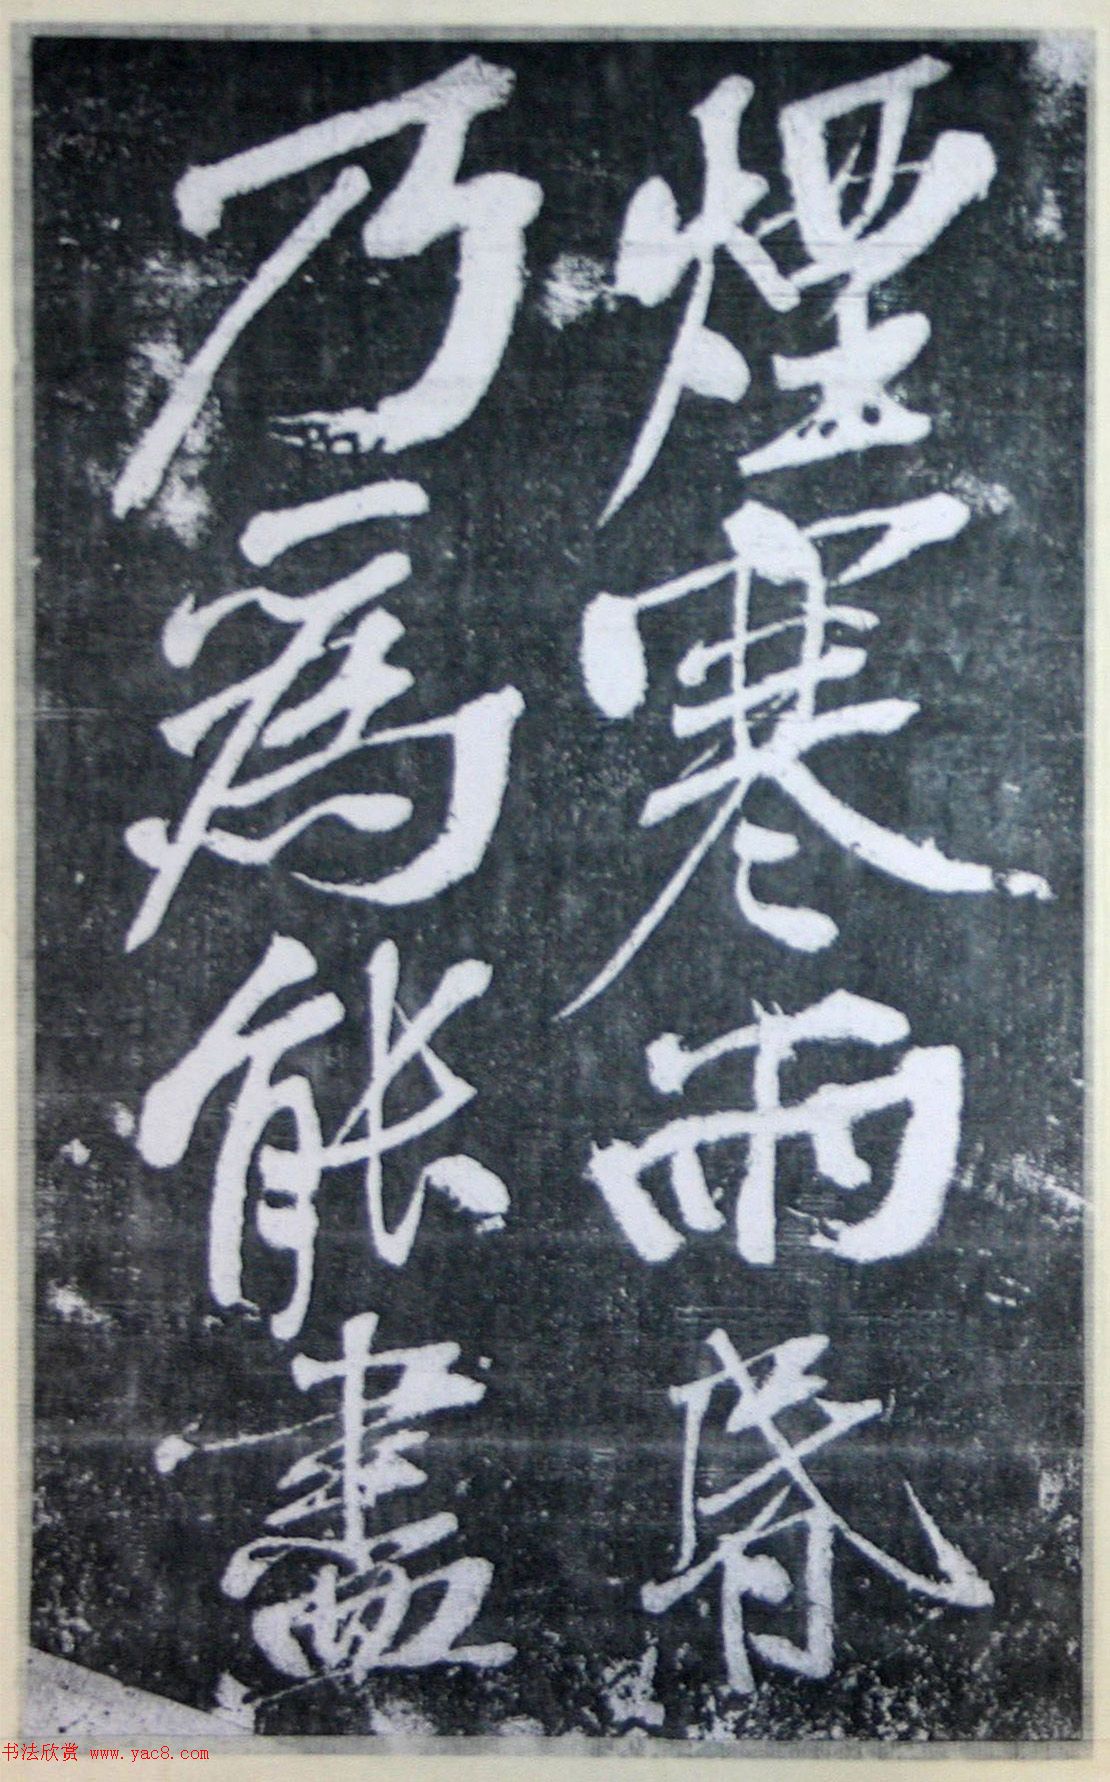 煙寒雨昏
乃為能盡
书法欣赏 www.yac8.com